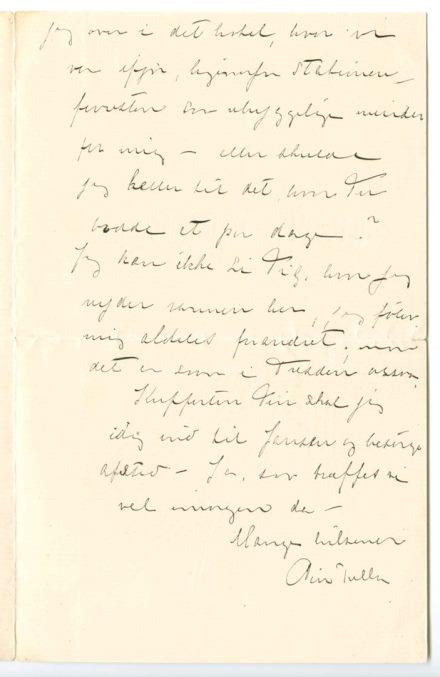 jeg over i det hotel, hvor vi
var ifjor, ligeoverfor Stationen,
forresten saa uhyggelige minder
for mig – eller skulde
jeg heller til det, hvor Du
bodde et par dage?
Jeg kan ikke si Dig, hvor jeg
nyder varmen her, jeg føler
mig aldeles forandret,
det er som i Dresden ogsaa.
Kufferten Din skal jeg
idag ind til Jansen og besørge
afsted – Ja, saa træffes vi
vel imorgen da –
Mange hilsener
Din Tulla